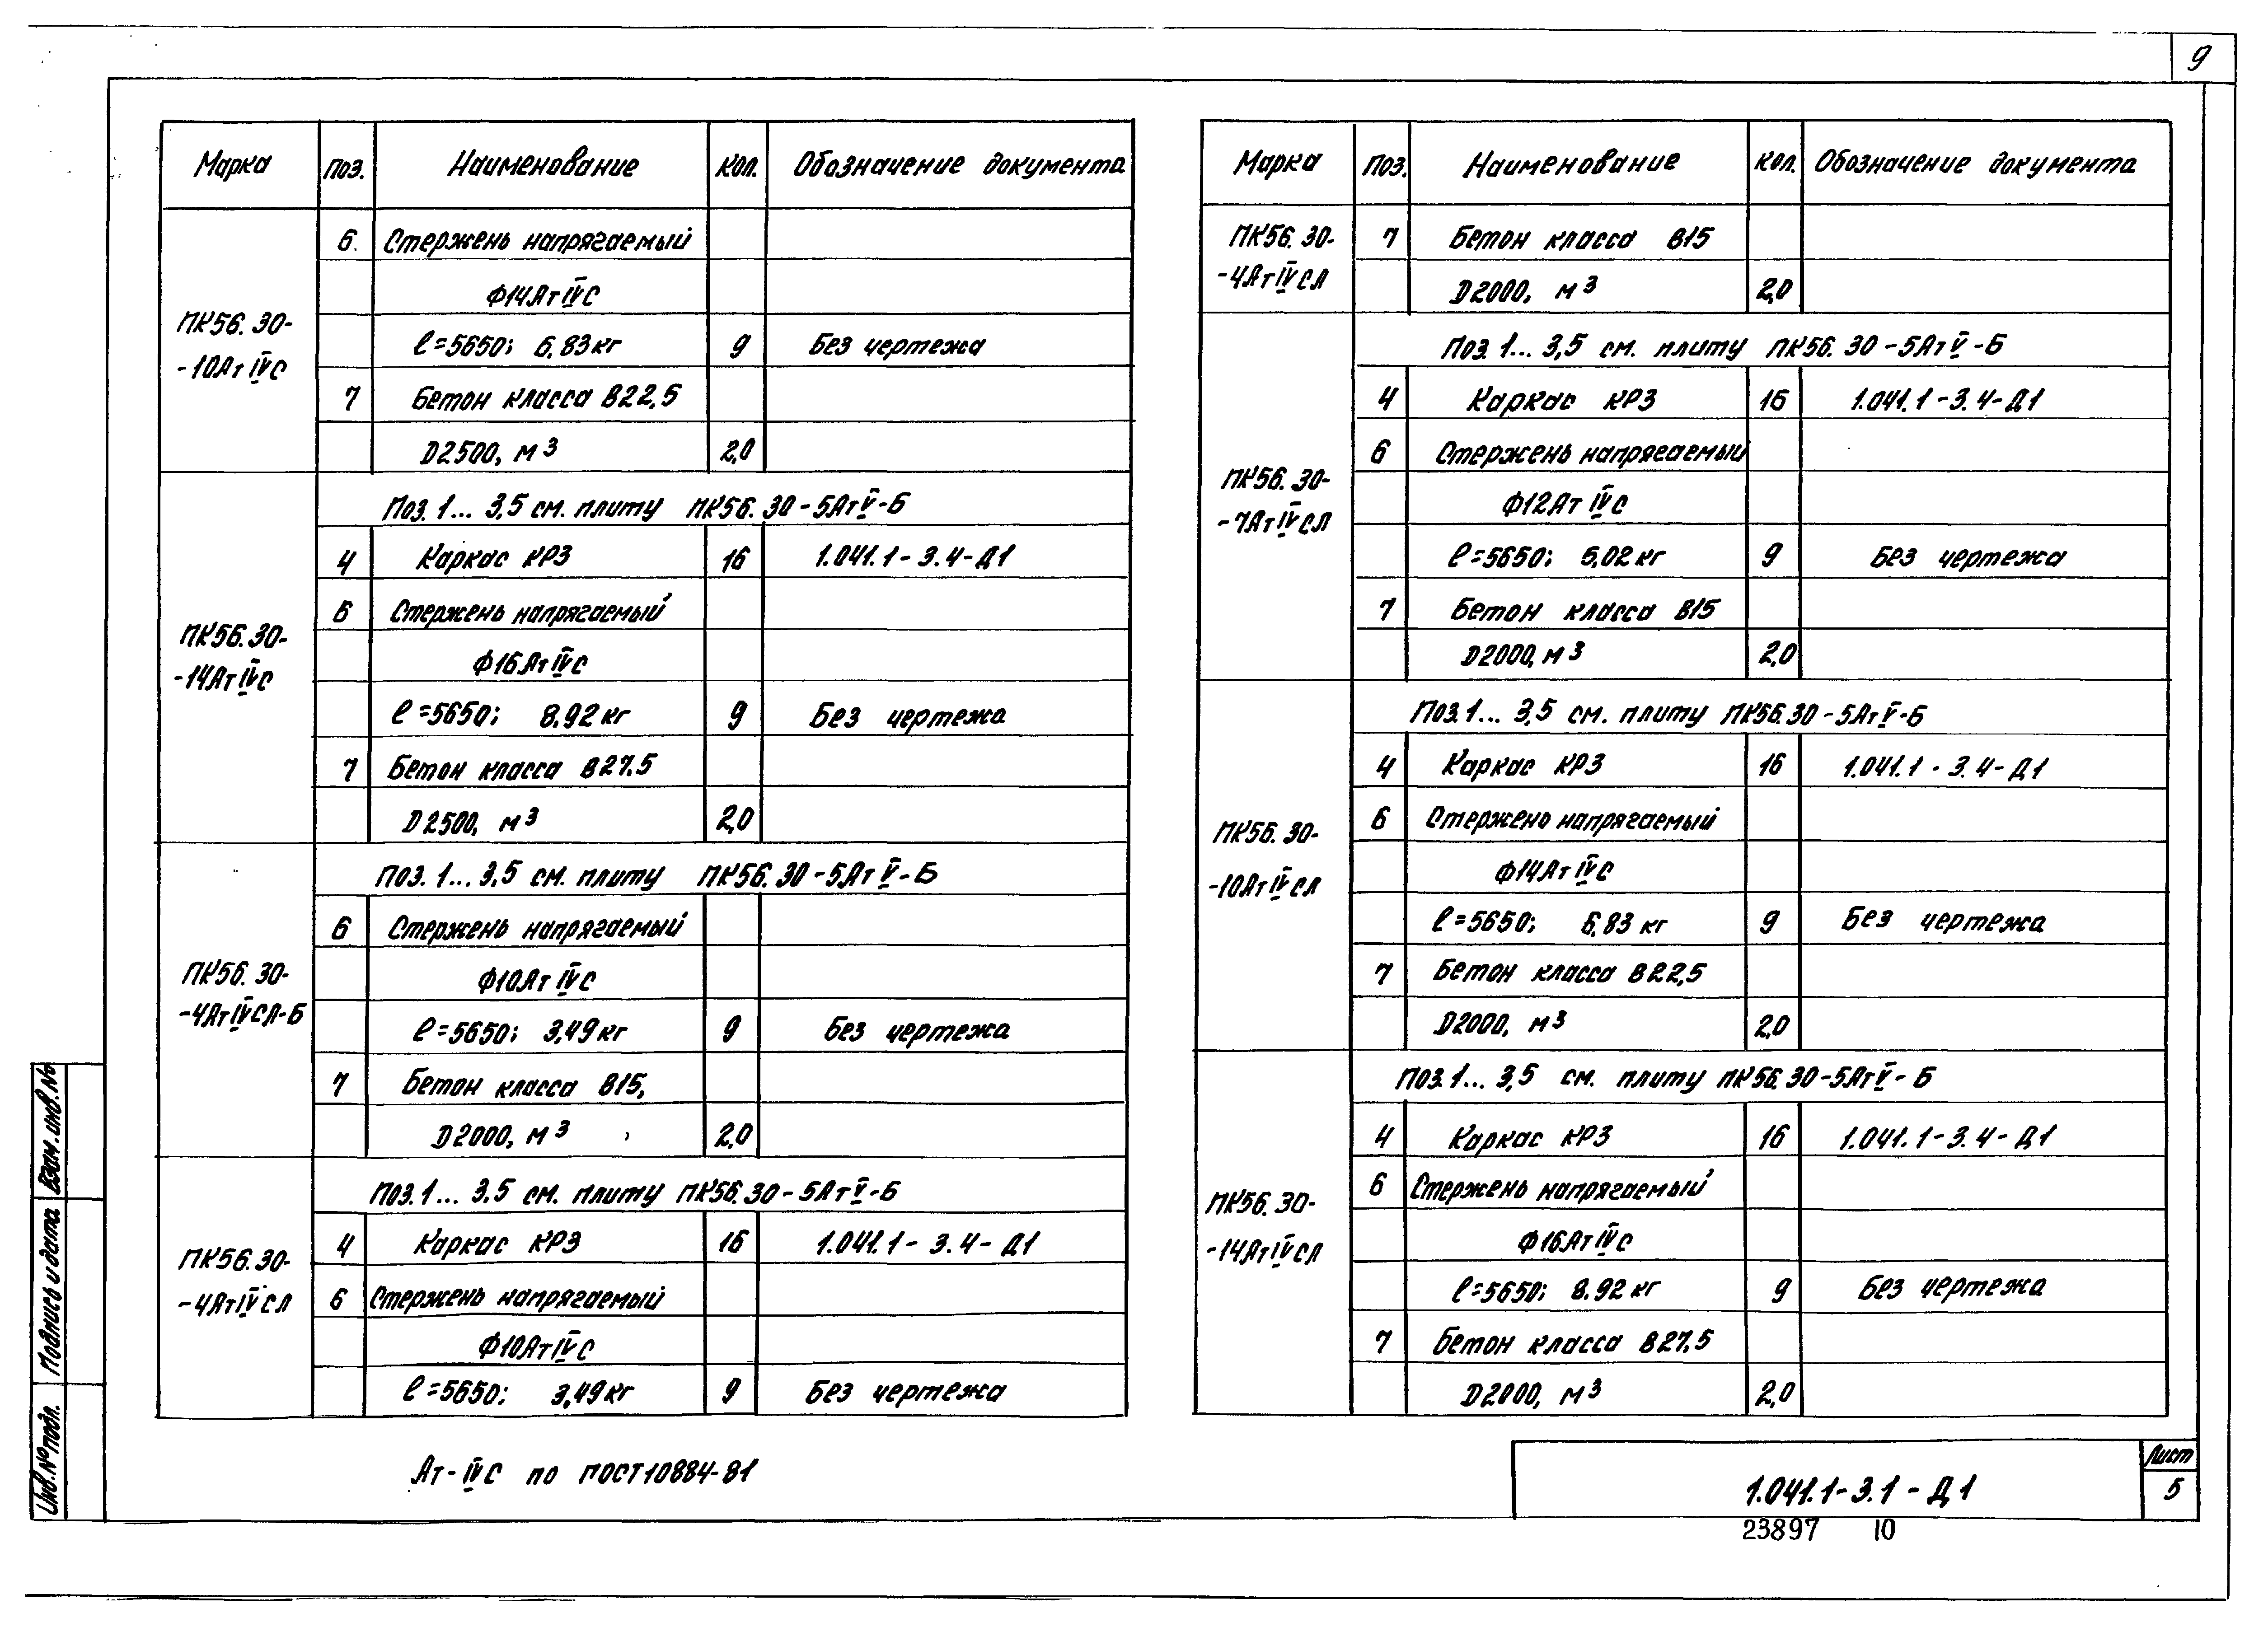 9
Марка Поз. Наименование Кол. Обозначение документа
ПК56.30-
-10АтIVС
6. Стержень напрягаемый
Ф14АтIVС
ℓ=5650; 6,83кг 9 Без чертежа
7 Бетон класса В22,5
D2500, м3 2,0
ПК56.30-
-14АтIVС
Поз.1... 3,5 см. плиту ПК56.30-5АтV-Б
4 Каркас КР3 16 1.041.1-3.4-Д1
6 Стержень напрягаемый
Ф16АтIVС
ℓ=5650; 8,92кг 9 Без чертежа
7 Бетон класса В27,5
D2500, м3 2,0
ПК56.30-
-4АтIVСЛ-Б
Поз.1... 3,5 см. плиту ПК56.30-5АтV-Б
6 Стержень напрягаемый
Ф10АтIVС
ℓ=5650; 3,49кг 9 Без чертежа
7 Бетон класса В15,
D2000, м3 2,0
ПК56.30-
-4АтIVСЛ
Поз.1... 3,5 см. плиту ПК56.30-5АтV-Б
4 Каркас КР3 16 1.041.1-3.4-Д1
6 Стержень напрягаемый
Ф10АтIVС
ℓ=5650; 3,49кг 9 Без чертежа
Марка Поз. Наименование Кол. Обозначение документа
ПК56.30-
-4АтIVСЛ
7 Бетон класса В15
D2000, м3 2,0
ПК56.30-
-7АтIVСЛ
Поз.1... 3,5 см. плиту ПК56.30-5АтV-Б
4 Каркас КР3 16 1.041.1-3.4-Д1
6 Стержень напрягаемый
Ф12АтIVС
ℓ=5650; 5,02кг 9 Без чертежа
7 Бетон класса В15
D2000, м3 2,0
ПК56.30-
-10АтIVСЛ
Поз.1... 3,5 см. плиту ПК56.30-5АтV-Б
4 Каркас КР3 16 1.041.1-3.4-Д1
6 Стержень напрягаемый
Ф14АтIVС
ℓ=5650; 6,83кг 9 Без чертежа
7 Бетон класса В22,5
D2000, м3 2,0
ПК56.30-
-14АтIVСЛ
Поз.1... 3,5 см. плиту ПК56.30-5АтV-Б
4 Каркас КР3 16 1.041.1-3.4-Д1
6 Стержень напрягаемый
Ф16АтIVС
ℓ=5650; 8,92кг 9 Без чертежа
7 Бетон класса В27,5
D2000, м3 2,0
Ат-IVС по ГОСТ10884-81
Инв.№подл. Подпись и дата Взам.инв.№
1.041.1-3.1-Д1
Лист
5
23897 10